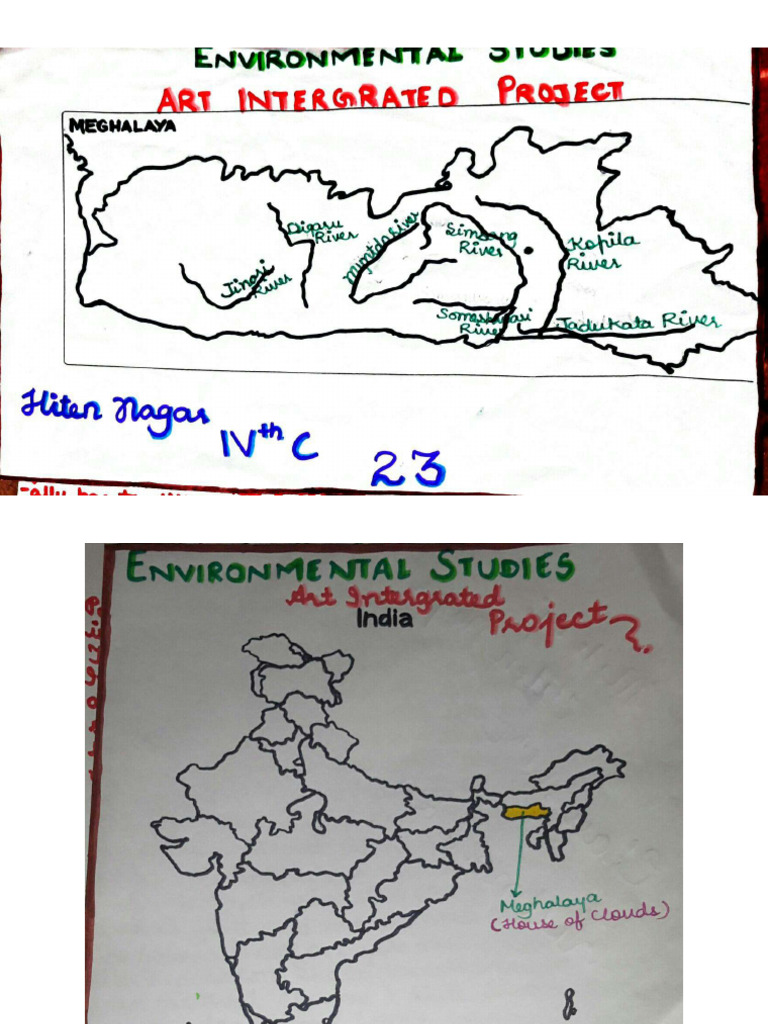 ENVIRONMENTAL STUDIES
ART INTERGRATED PROJECT
MEGHALAYA
Digaru
River
Myntdu River
Simsang
River
Kopila
River
Jinari
River
Someshwari
River
Jadukata River
Hiten Nagar
IVth C
23
ENVIRONMENTAL STUDIES
Art Intergrated
Project
India
Meghalaya
(House of Clouds)